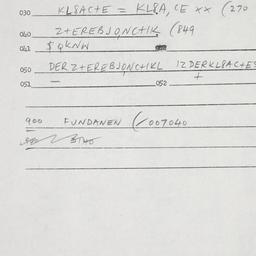 030 KL8AC+E = KL8A, CE xx (270
040 Z+EREBJONC+IK (849
041 $ QKNW
050 DER Z+EREBJONC+IKL 12 DERKL8AC+ES
051 — 052 +
900 FUNDANEN (/007040